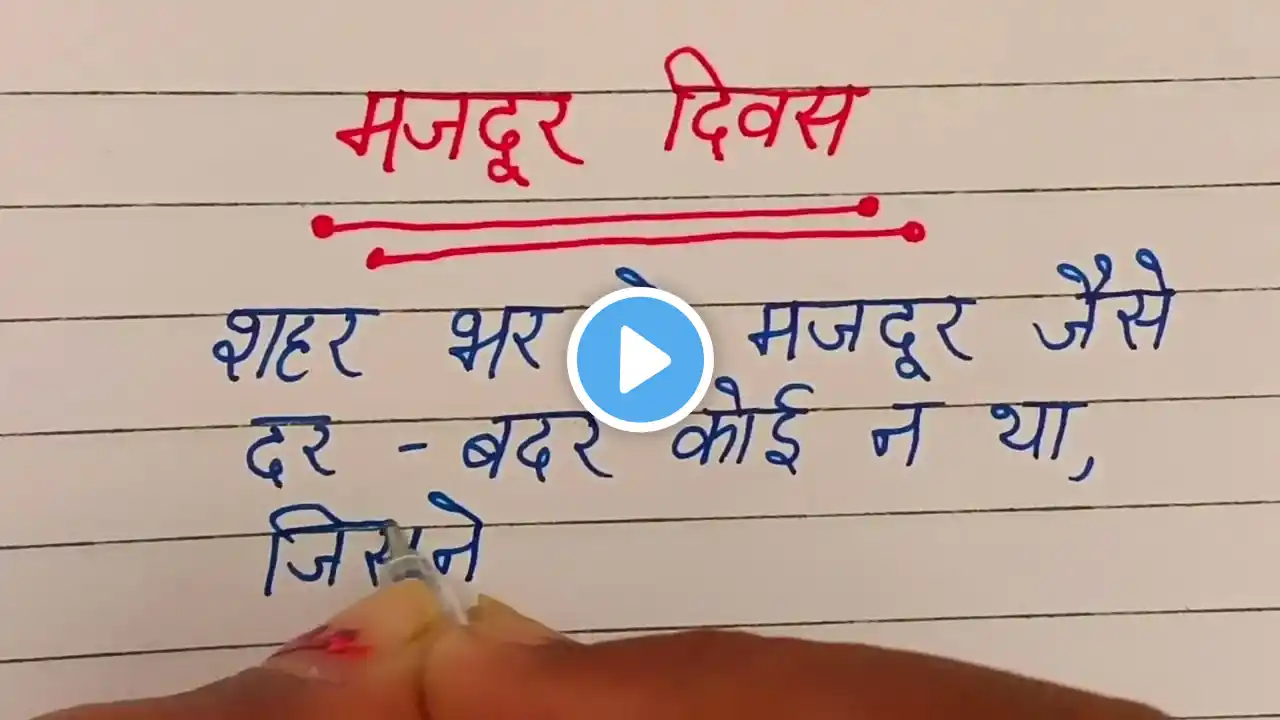 मजदूर दिवस
शहर भर मजदूर जैसे
दर - बदर कोई न था,
जिसने